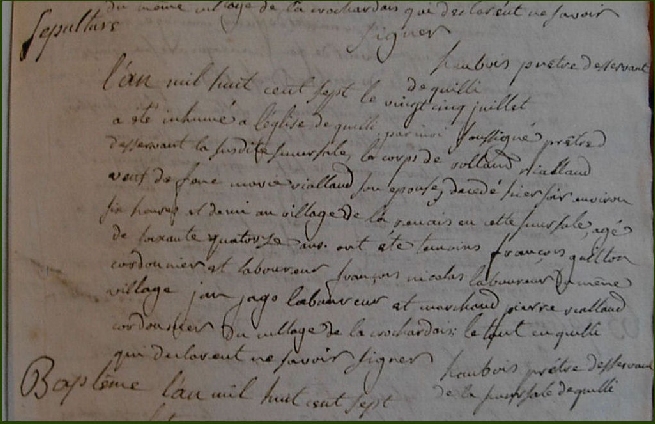 du même village de la crochardais qui declarent ne savoir
Sepulture signer
haubois prêtre desservant
de quilli
l'an mil huit cent sept le vingt cinq juillet
a été inhumé a l'église de quilli, par moi soussigné prêtre
desservant la susdite succursale, le corps de rolland viallaud
veuf de feue marie viallaud son epouse, decedé hier soir environ
six heures et demi au village de la renais en cette succursale, agé
de soixante quatorze ans. ont été temoins françois
cordonnier et laboureur françois nicolas laboureur du même
village jan jago laboureur et marchand pierre viallaud
cordonnier du village de la crochardais: le tout en quilli
qui declarent ne savoir signer haubois prêtre desservant
de la succursale de quilli
Baptême l'an mil huit cent sept